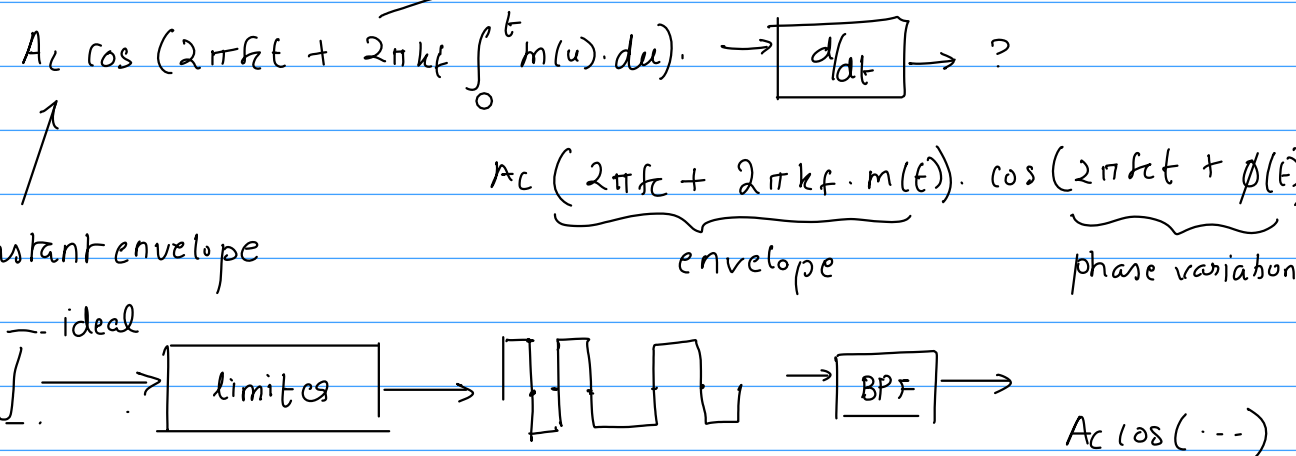 Ac cos (2πfct + 2πkf ∫₀ᵗ m(u)·du). → d/dt → ?
Ac (2πfc + 2πkf · m(t)). cos (2πfct + φ(t)
envelope
phase variation
ideal
limiter → → BPF →
Ac cos(···)